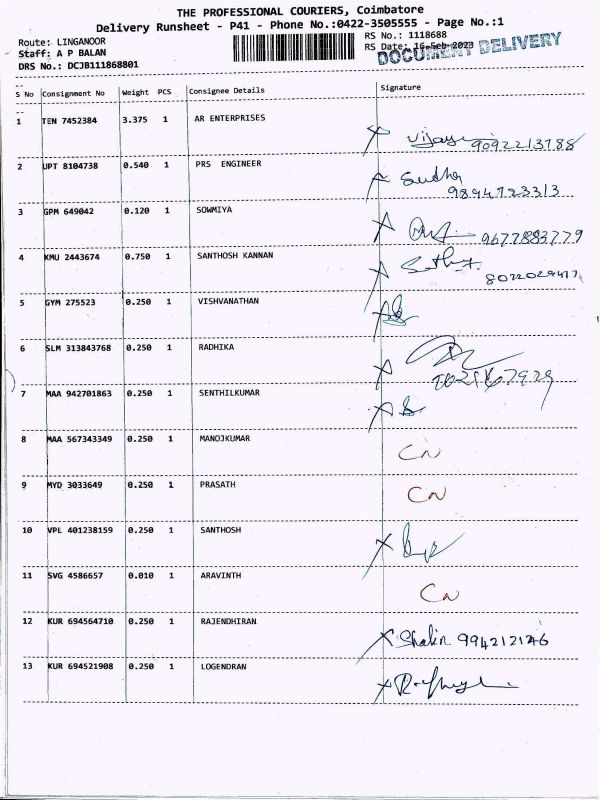 THE PROFESSIONAL COURIERS, Coimbatore
Delivery Runsheet - P41 - Phone No.:0422-3505555 - Page No.:1
Route: LINGANOOR RS No.: 1118688
Staff: A P BALAN RS Date: 16-Feb-2023 DOCUMENT DELIVERY
DRS No.: DCJB111868801
S No Consignment No Weight PCS Consignee Details Signature
1 TEN 7452384 3.375 1 AR ENTERPRISES
X 9092213788
2 UPT 8104738 0.540 1 PRS ENGINEER
Sudha
9894723313
3 GPM 649042 0.120 1 SOWMIYA
X 9677883779
4 KMU 2443674 0.750 1 SANTHOSH KANNAN
X
5 GYM 275523 0.250 1 VISHVANATHAN
6 SLM 313843768 0.250 1 RADHIKA
X
7 MAA 942701863 0.250 1 SENTHILKUMAR
X
8 MAA 567343349 0.250 1 MANOJKUMAR
CN
9 MYD 3033649 0.250 1 PRASATH
CN
10 VPL 401238159 0.250 1 SANTHOSH
X
11 SVG 4586657 0.010 1 ARAVINTH
CN
12 KUR 694564710 0.250 1 RAJENDHIRAN
X
13 KUR 694521908 0.250 1 LOGENDRAN
X